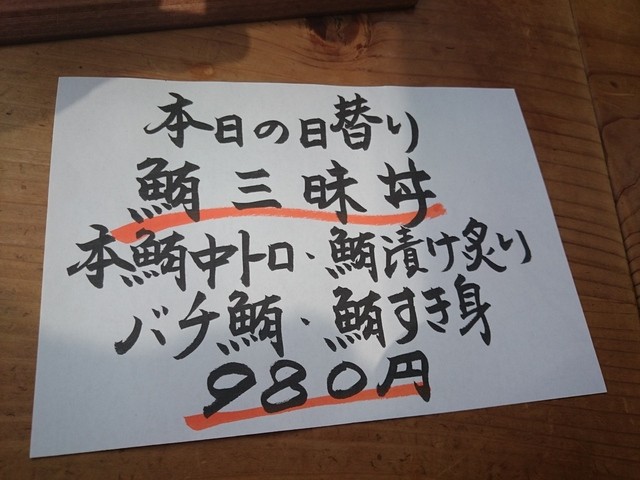 本日の日替り
鮪三昧丼
本鮪中トロ・鮪漬け炙り
バチ鮪・鮪すき身
980円